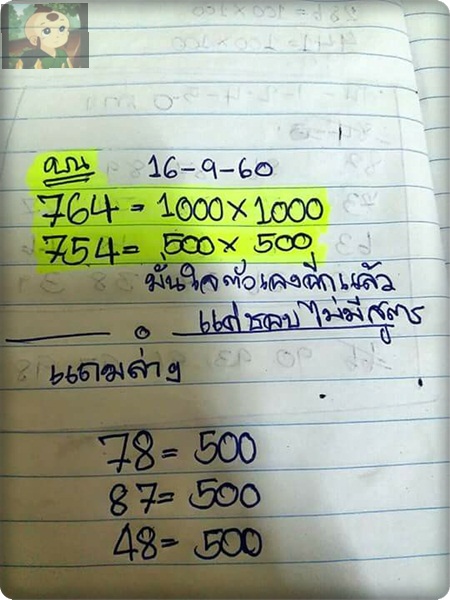 บน 16-9-60
764 = 1000 × 1000
754 = 500 × 500
มั่นใจตัวเองอีกแล้ว
แค่ชอบไม่มีสูตร
แถมล่าง
78 = 500
87 = 500
48 = 500